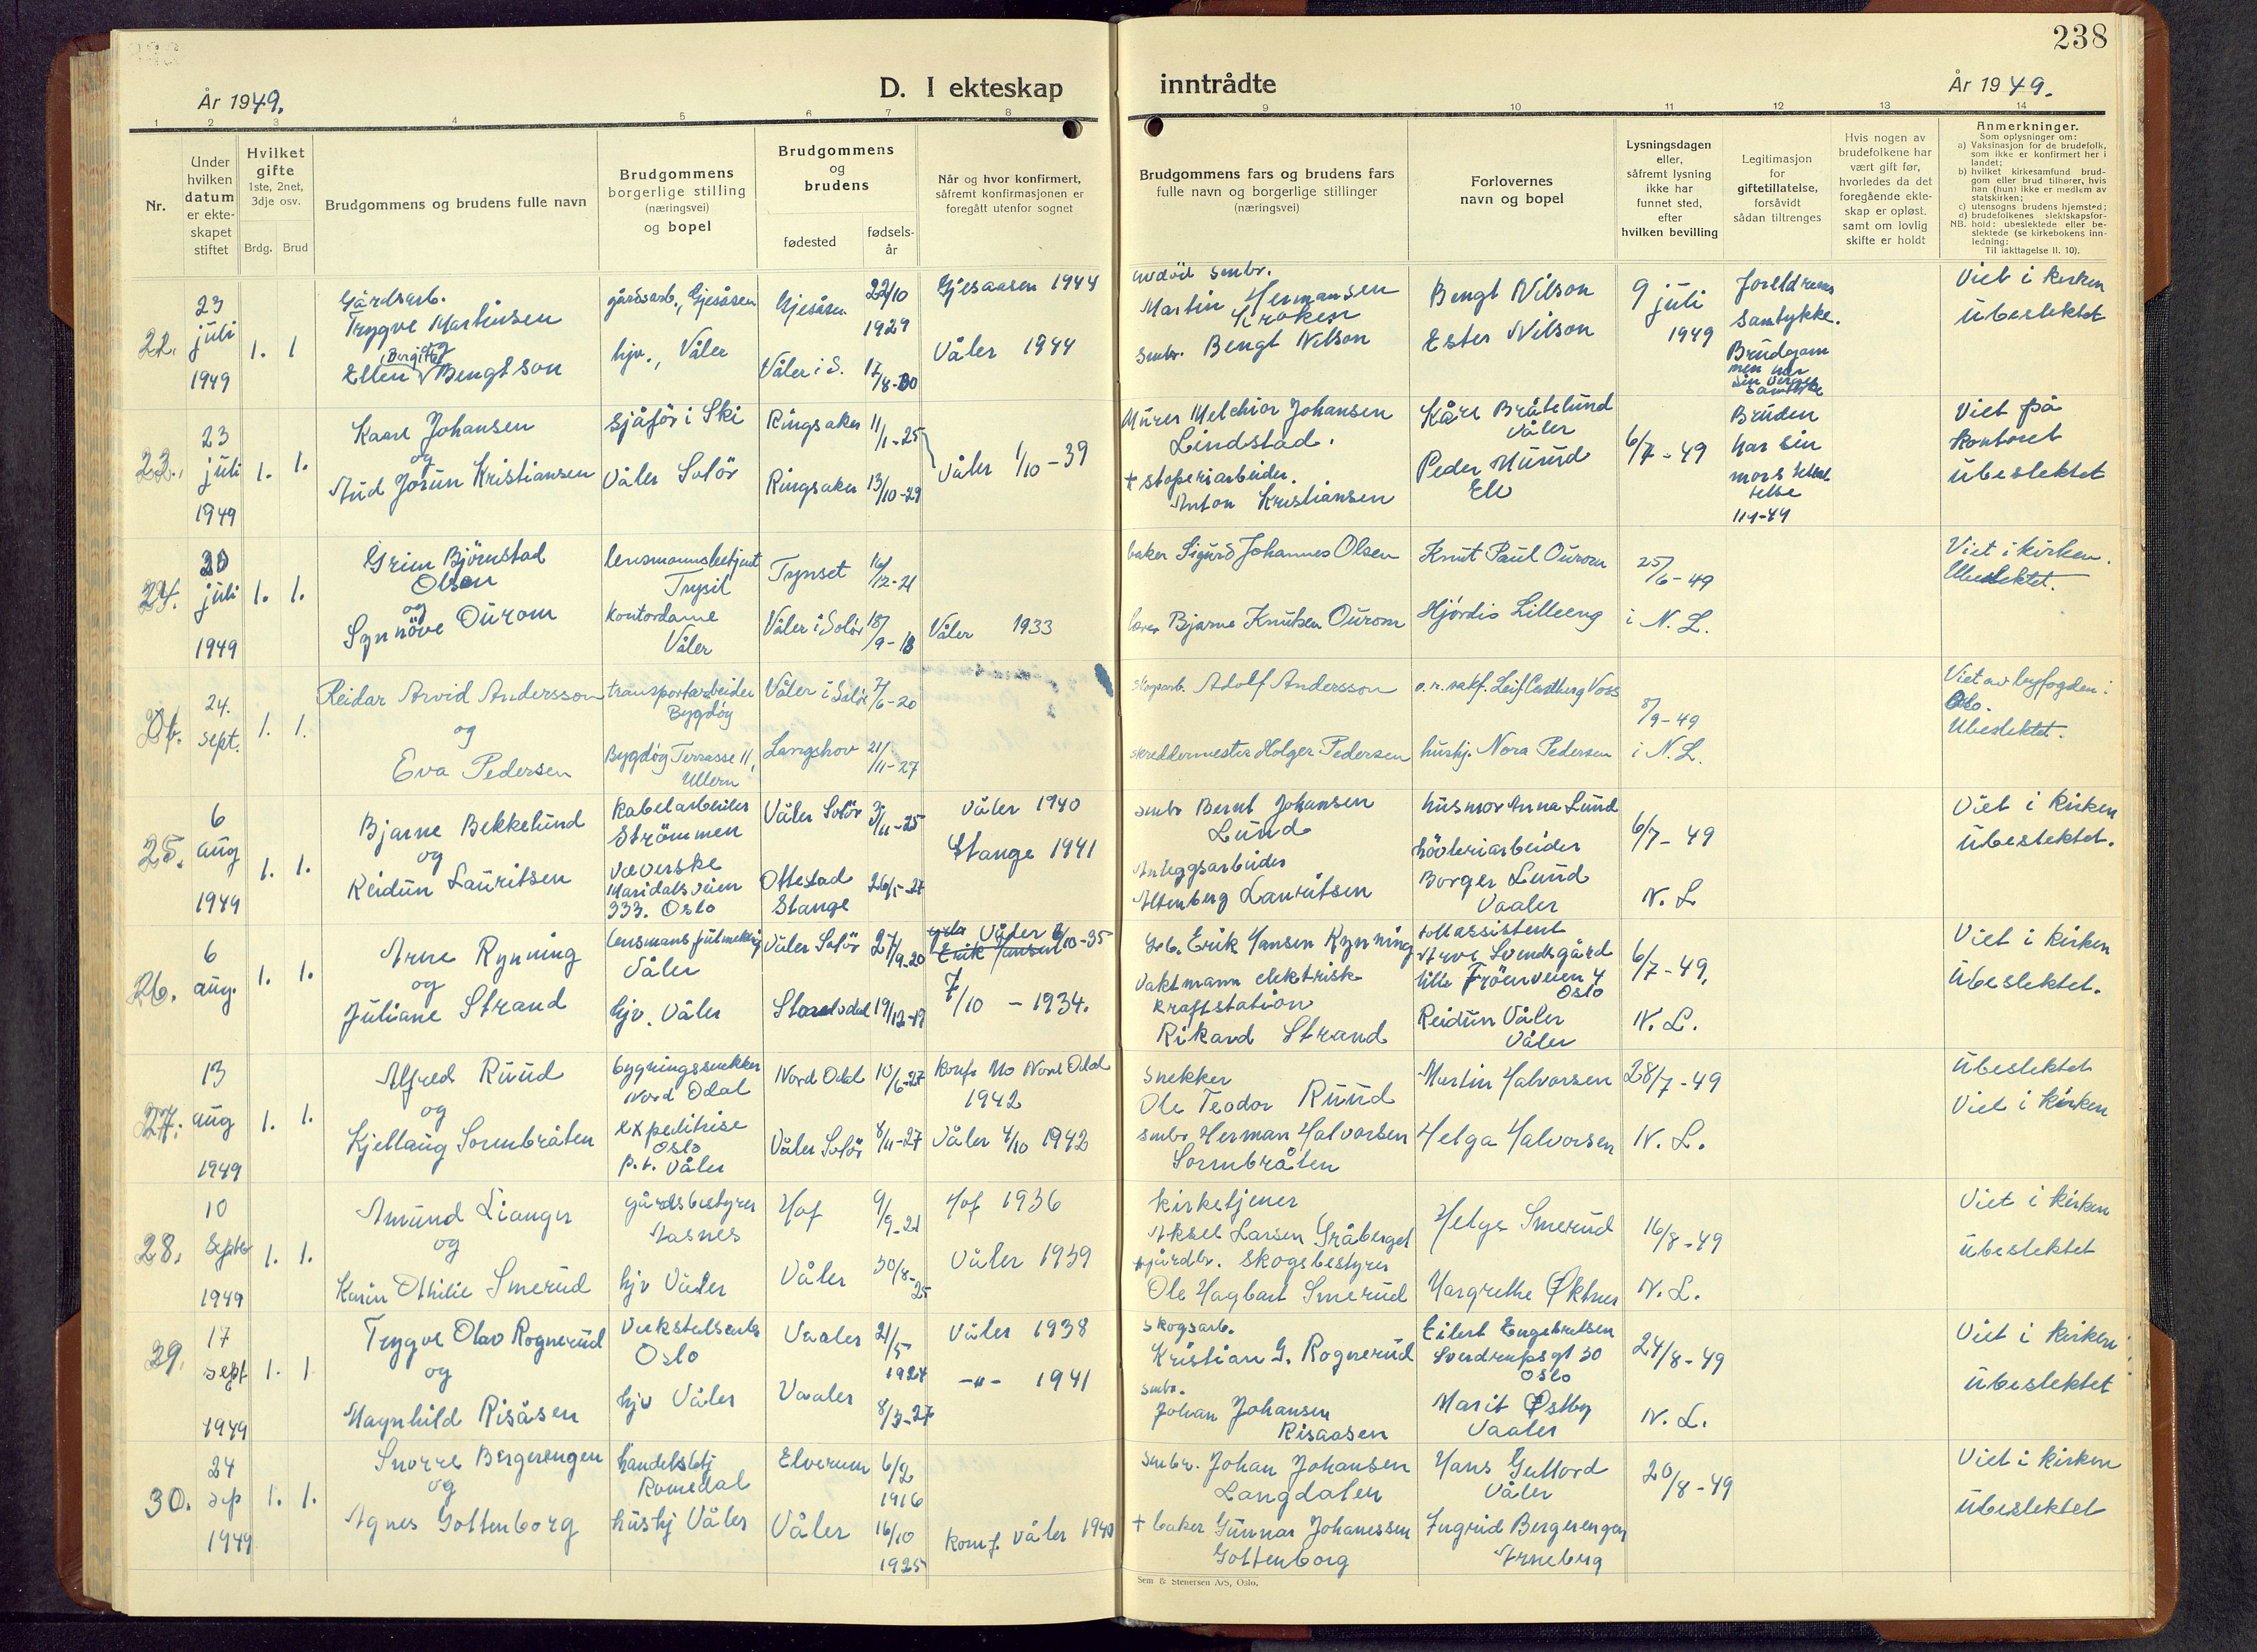 238
År 1949.
D. I ekteskap inntrådte
År 1949.
1 2 3 4 5 6 7 8 9 10 11 12 13 14
Nr.
Under
hvilken
datum
er ekte-
skapet
stiftet
Hvilket
gifte
1ste, 2net,
3dje osv.
Brdg. Brud
Brudgommens og brudens fulle navn
Brudgommens
borgerlige stilling
(næringsvei)
og bopel
Brudgommens
og
brudens
fødested
fødsels-
år
Når og hvor konfirmert,
såfremt konfirmasjonen er
foregått utenfor sognet
Brudgommens fars og brudens fars
fulle navn og borgerlige stillinger
(næringsvei)
Forlovernes
navn og bopel
Lysningsdagen
eller,
såfremt lysning
ikke har
funnet sted,
efter
hvilken bevilling
Legitimasjon
for
giftetillatelse,
forsåvidt
sådan tiltrenges
Hvis nogen av
brudefolkene har
vært gift før,
hvorledes da det
foregående ekte-
skap er opløst,
samt om lovlig
skifte er holdt
Anmerkninger.
Som oplysninger om:
a) Vaksinasjon for de brudefolk,
som ikke er konfirmert her i
landet;
b) hvilket kirkesamfund brud-
gom eller brud tilhører, hvis
han (hun) ikke er medlem av
statskirken;
c) utensogns brudens hjemsted;
d) brudefolkenes slektskapsfor-
NB. hold: ubeslektede eller be-
slektede (se kirkebokens inn-
ledning:
Til iakttagelse II. 10).
22.
23
juli
1949
1. 1
Gårdsarb.
Trygve Martinsen
og
Birgitte
Ellen Bengtson
gårdsarb., Gjesåsen
hjv., Våler
Gjesåsen
22/10
1929
Våler i S.
17/8-30
Gjesaasen 1944
Våler 1944
avdöd smbr.
Martin Hermansen
Kroken
smbr. Bengt Nilson
Bengt Nilson
Ester Nilson
9
juli
1949
Foreldrenes
samtykke.
Brudgom
men har
sin verges
samtykke
Viet i kirken
ubeslektet
23.
23
juli
1949
1. 1.
Kaare Johansen
og
Aud Jorun Kristiansen
sjåför i Ski
Våler Solör
Ringsaker 11/1-25
Ringsaker 13/10-29
Våler 1/10-39
Murer Melchior Johansen
Lindstad.
+ støperiarbeider.
Anton Kristiansen
Kåre Bråtelund
Våler
Peder Murud
Elv
6/7-49
Bruden
har sin
mors tillat
telse
Viet på
kontoret
ubeslektet
24.
30
juli
1949
1. 1.
Grim Björnstad
Olsen
og
Synnöve Ourom
lensmannsbetjent
Trysil
kontordame
Våler
Tynset 16/12-21
Våler i Solör 18/9-18
Våler 1933
baker Sigurd Johannes Olsen
lærer Bjarne Knutsen Ourom
Knut Paul Ourom
Hjördis Lilleeng
25/6-49
i N. L.
Viet i kirken.
Ubeslektet.
24.
sept.
1. 1.
Reidar Arvid Andersson
og
Eva Pedersen
transportarbeider
Bygdöy
Bygdöy Terrasse 11,
Ullern
Våler i Solör 7/6-20
Langshov 21/11-27
skogsarb. Adolf Andersson
skreddermester Holger Pedersen
o.r. sakf. Leif Castberg Voss
hushj. Nora Pedersen
8/9-49
i N. L.
Viet av byfogden i
Oslo.
Ubeslektet.
25.
6
aug
1949
1. 1.
Bjarne Bekkelund
og
Reidun Lauritsen
kabelarbeider
Strömmen
væverske
Maridalsveien
333. Oslo
Våler Solör 3/11-25
Ottestad
Stange
26/5-27
Våler 1940
Stange 1941
smbr Bernt Johansen
Lund
Anleggsarbeider
Altenberg Lauritsen
husmor Anna Lund
hövleriarbeider
Borger Lund
Vaaler
6/7-49
N. L
Viet i kirken
ubeslektet.
26.
6
aug.
1. 1.
Arne Rynning
og
Juliane Strand
lensmans fulmektig
Våler
hjv. Våler
Våler Solör 27/9-20
Storelvdal 19/12-19
Våler 6/10-35
Erik Hansen
7/10 - 1934.
Grb. Erik Hansen Rynning
vaktmann elektrisk
kraftstation
Rikard Strand
tollassistent
Arve Svendsgård
lille Fröenveien 4
Oslo
Reidun Våler
Våler
6/7-49,
N. L.
Viet i kirken
ubeslektet.
27.
13
aug
1949
1. 1.
Alfred Ruud
og
Kjellaug Sormbråten
bygningssnekker
Nord Odal
expeditrise
Oslo
p.t. Våler
Nord Odal 10/6-27
Våler Solör 8/11-27
konf. Mo Nord Odal
1942
Våler 4/10 1942
snekker
Ole Teodor Ruud
smbr Herman Halvorsen
Sormbråten
Martin Halvorsen
Helga Halvorsen
28/7-49
N. L.
ubeslektet
Viet i kirken
28.
10
septbr
1949
1. 1.
Amund Lianger
og
Karin Othilie Smerud
gårdsbestyrer
Aasnes
hjv Våler
Hof 9/9-21
Våler 30/8-25
Hof 1936
Våler 1939
kirketjener
Aksel Larsen Gråberget
+ gårdbr. skogsbestyrer
Ole Hagbart Smerud
Helge Smerud
Margrethe Øktner
16/8-49
N. L.
Viet i kirken
ubeslektet
29.
17
sept
1949
1. 1
Trygve Olav Rognerud
og
Magnhild Risåsen
verkstedsarb
Oslo
hjv Våler
Vaaler 21/5
1924
Vaaler 8/3-27
Våler 1938
-"- 1941
skogsarb.
Kristian G. Rognerud
smbr.
Johan Johansen
Risaasen
Eilert Engebretsen
Sverdrupsgt 30
Oslo
Marit Østby
Vaaler
24/8-49
N. L.
Viet i kirken
ubeslektet
30.
24
sep
1949
1. 1.
Snorre Bergerengen
og
Agnes Gottenborg
handelsbtj
Romedal
hushj Våler
Elverum 6/2
1916
Våler 16/10
1925
konf. Våler 1940
smbr. Johan Johansen
Langdalen
+ baker Gunnar Johanessen
Gottenborg
Hans Gulbord
Våler
Ingrid Bergerengen
Arneberg
20/8-49
Viet i kirken
ubeslektet
Sem & Stenersen A/S, Oslo.